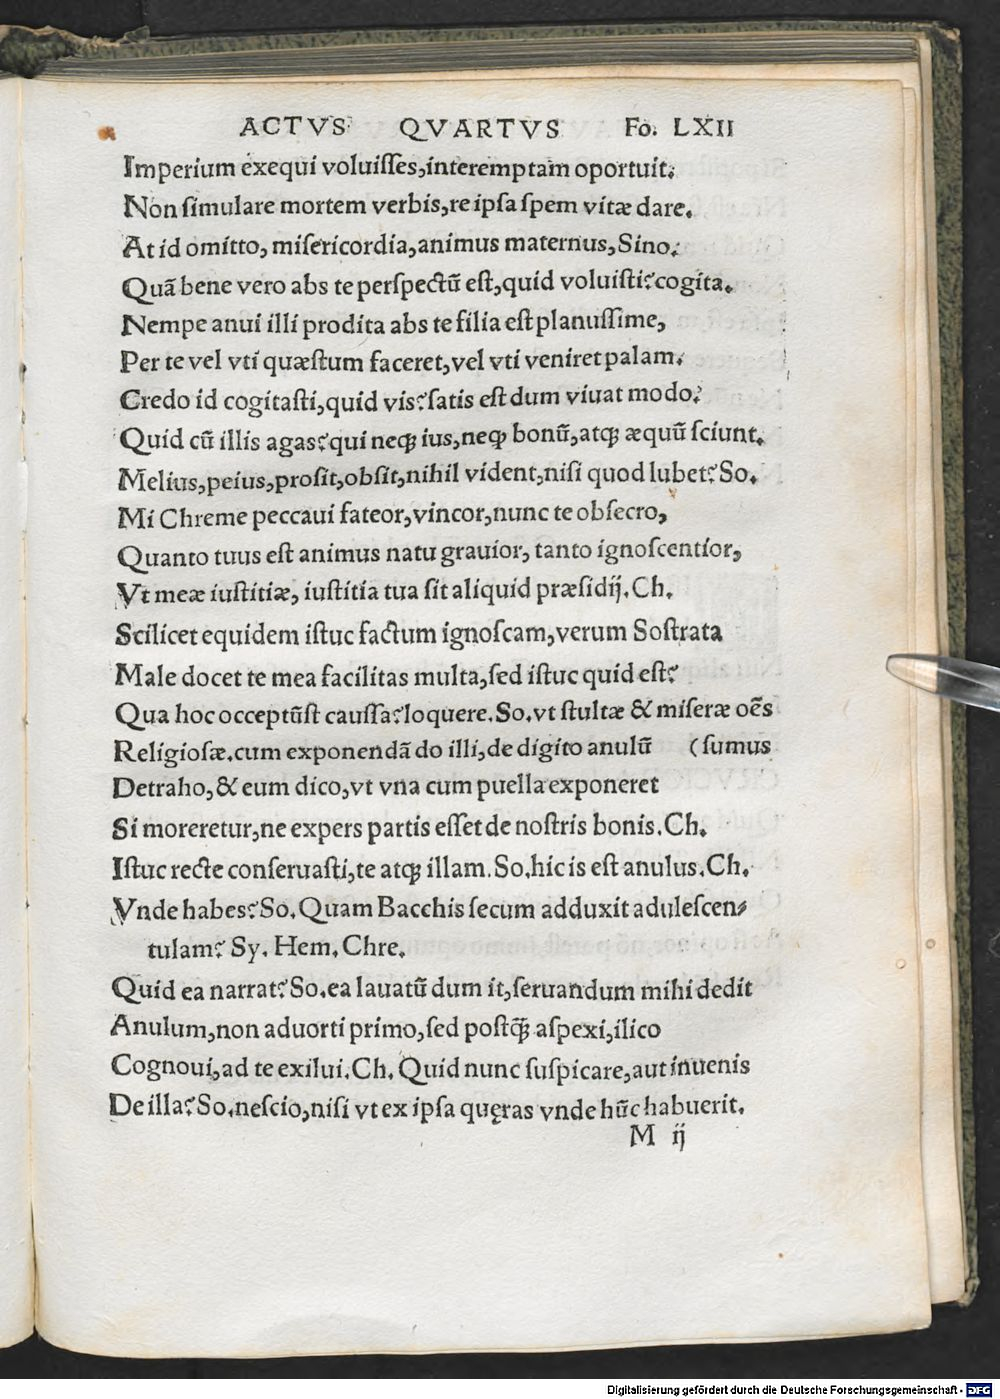 ACTVS QVARTVS Fo. LXII
Imperium exequi voluiſſes,interemptam oportuit.
Non ſimulare mortem verbis,re ipſa ſpem vitæ dare.
At id omitto, miſericordia,animus maternus,Sino.
Quã bene vero abs te perſpectũ eſt,quid voluiſti?cogita.
Nempe anui illi prodita abs te filia eſt planuſſime,
Per te vel vti quæſtum faceret,vel vti veniret palam.
Credo id cogitaſti,quid vis?ſatis eſt dum viuat modo.
Quid cũ illis agas?qui neqꝫ ius,neqꝫ bonũ,atqꝫ æquũ ſciunt.
Melius,peius,proſit,obſit,nihil vident,niſi quod lubet? So.
Mi Chreme peccaui fateor,vincor,nunc te obſecro,
Quanto tuus eſt animus natu grauior, tanto ignoſcentior,
Vt meæ iuſtitiæ, iuſtitia tua ſit aliquid præſidij. Ch.
Scilicet equidem iſtuc factum ignoſcam,verum Soſtrata
Male docet te mea facilitas multa,ſed iſtuc quid eſt?
Qua hoc occeptũſt cauſſa?loquere. So.vt ſtultæ & miſeræ oẽs
Religioſæ.cum exponendã do illi,de digito anulũ (ſumus
Detraho,& eum dico,vt vna cum puella exponeret
Si moreretur,ne expers partis eſſet de noſtris bonis. Ch.
Iſtuc recte conſeruaſti,te atqꝫ illam. So.hic is eſt anulus. Ch.
Vnde habes? So. Quam Bacchis ſecum adduxit aduleſcen⸗
tulam? Sy. Hem. Chre.
Quid ea narrat? So.ea lauatũ dum it,ſeruandum mihi dedit
Anulum,non aduorti primo,ſed poſtq̃ aſpexi,ilico
Cognoui,ad te exilui. Ch. Quid nunc ſuſpicare,aut inuenis
De illa? So.neſcio,niſi vt ex ipſa quęras vnde hũc habuerit.
M ij
Digitalisierung gefördert durch die Deutsche Forschungsgemeinschaft - DFG